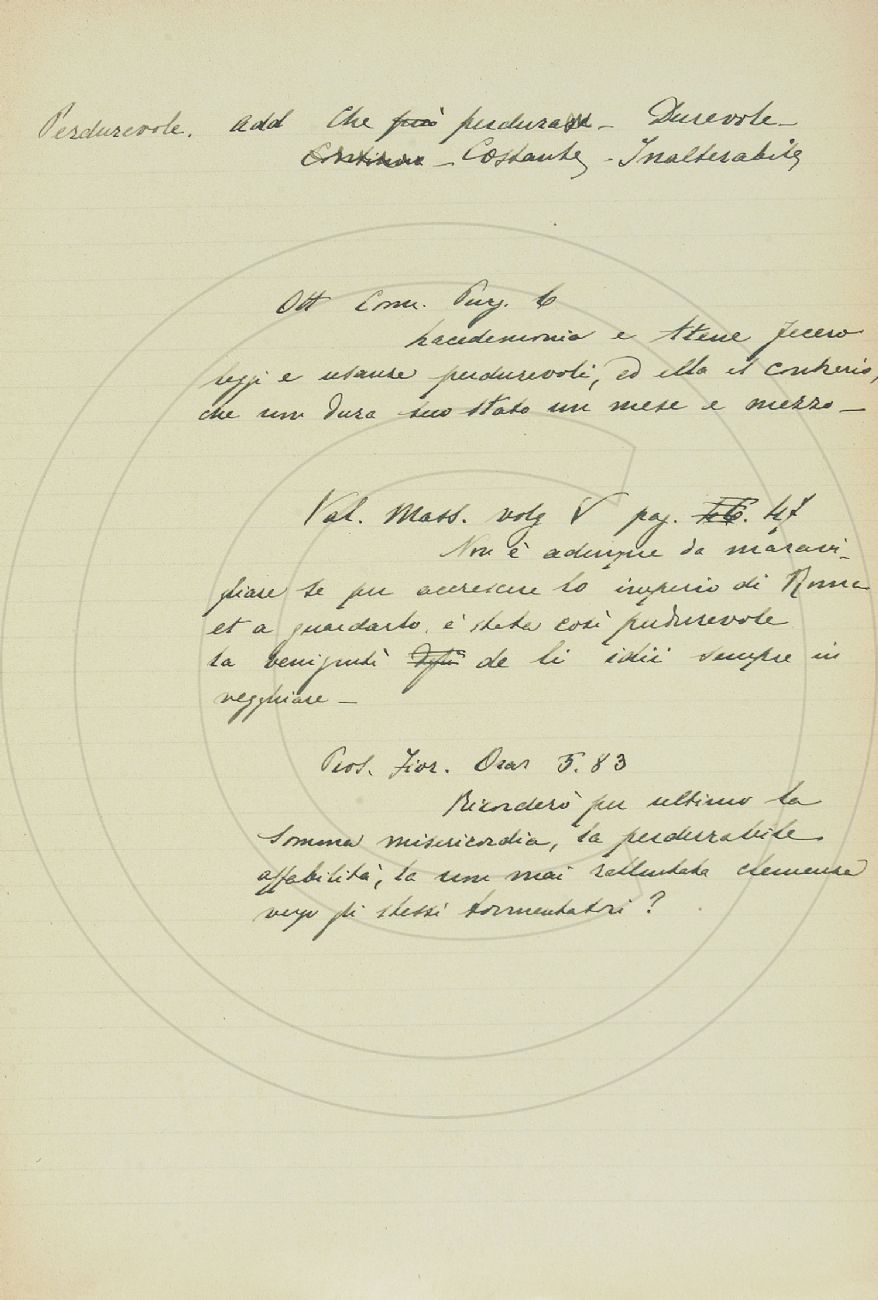 Perdurevole. add Che può perdurare – Durevole –
Continuo – Costante, – Inalterabile,
Ott Com. Purg. 6
Lacedemonia e Atene fecero
leggi e usanze perdurevoli, ed ella il contrario,
che non dura suo stato un mese e mezzo –
Val. Mass. volg V pag. 47
Non è adunque da maravi-
gliare se per accrescere lo imperio di Roma
et a guardarlo, è stata così perdurevole
la benignità de li idii sempre in
vegghiare –
Pros. Fior. Oraz 5. 83
Ricorderò per ultimo la
somma misericordia, la perdurabile
affabilità, la non mai rallentata clemenza
verso gli stessi tormentatori ?